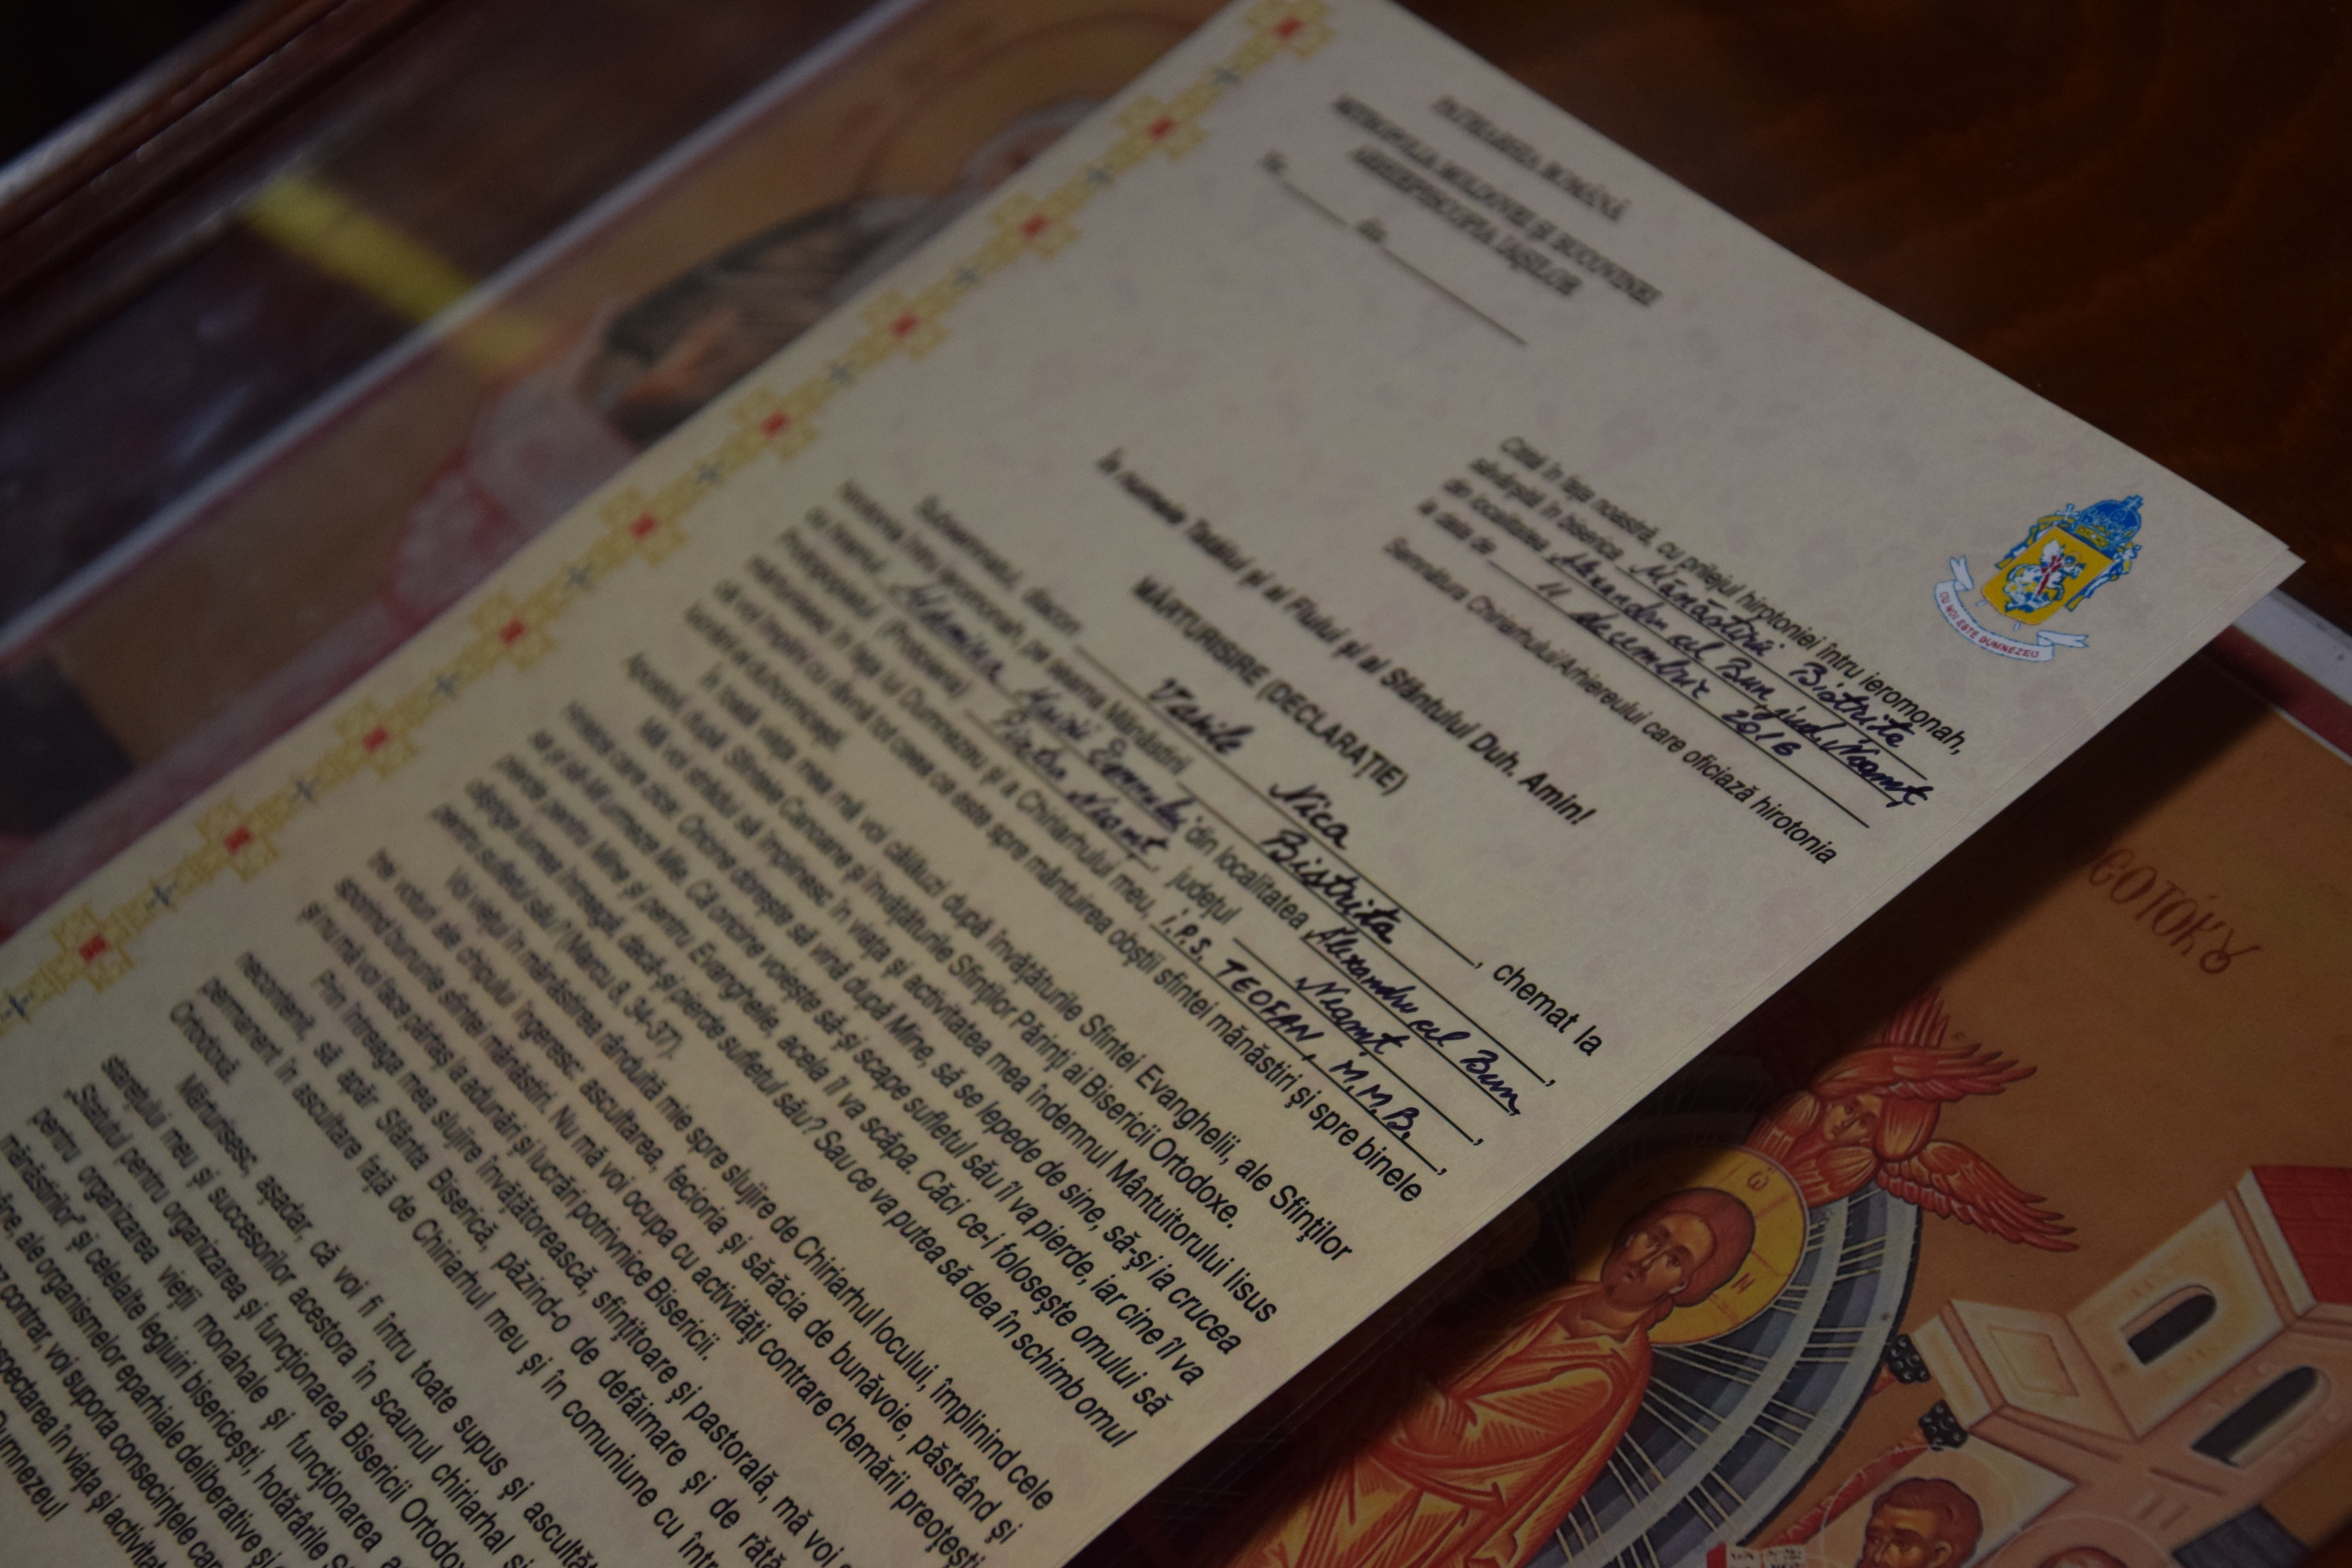 PATRIARHIA ROMÂNĂ
MITROPOLIA MOLDOVEI ȘI BUCOVINEI
ARHIEPISCOPIA IAȘILOR
Nr. din
CU NOI ESTE DUMNEZEU
Citită în fața noastră, cu prilejul hirotoniei întru ieromonah,
săvârșită în biserica Mănăstirii Bistrița
din localitatea Alexandru cel Bun, jud. Neamț
la data de 11 decembrie 2016
Semnătura Chiriarhului/Arhiereului care oficiază hirotonia
În numele Tatălui și al Fiului și al Sfântului Duh. Amin!
MĂRTURISIRE (DECLARAȚIE)
Subsemnatul, diacon Vasile Nica, chemat la
hirotonia întru ieromonah, pe seama Mănăstirii Bistrița,
cu hramul Adormirea Maicii Domnului din localitatea Alexandru cel Bun,
Protopopiatul (Protoieria) Piatra Neamț, județul Neamț,
mărturisesc în fața lui Dumnezeu și a Chiriarhului meu, I.P.S. TEOFAN, M.M.B.,
că voi împlini cu râvnă tot ceea ce este spre mântuirea obștii sfintei mănăstiri și spre binele
În toată viața mea mă voi călăuzi după învățăturile Sfintei Evanghelii, ale Sfinților
Apostoli, după Sfintele Canoane și învățăturile Sfinților Părinți ai Bisericii Ortodoxe.
Mă voi strădui să împlinesc în viața și activitatea mea îndemnul Mântuitorului Iisus
Hristos care zice: Oricine dorește să vină după Mine, să se lepede de sine, să-și ia crucea
sa și să-Mi urmeze Mie. Că oricine voiește să-și scape sufletul său îl va pierde, iar cine îl va
pierde pentru Mine și pentru Evanghelie, acela îl va scăpa. Căci ce-i folosește omului să
câștige lumea întreagă, dacă-și pierde sufletul său? Sau ce va putea să dea în schimb omul
pentru sufletul său? (Marcu 8, 34-37).
Voi viețui în mănăstirea rânduită mie spre slujire de Chiriarhul locului, împlinind cele
trei voturi ale chipului îngeresc: ascultarea, fecioria și sărăcia de bunăvoie, păstrând și
sporind bunurile sfintei mănăstiri. Nu mă voi ocupa cu activități contrare chemării preoțești
și nu mă voi face părtaș la adunări și lucrări potrivnice Bisericii.
Prin întreaga mea slujire învățătorească, sfințitoare și pastorală, mă voi
necontenit, să apăr Sfânta Biserică, păzind-o de defăimare și de rătă
permanent în ascultare față de Chiriarhul meu și în comuniune cu într
Ortodoxă.
Mărturisesc, așadar, că voi fi întru toate supus și ascultă
starețului meu și succesorilor acestora în scaunul chiriarhal și
„Statutul pentru organizarea și funcționarea Bisericii Ortodox
pentru organizarea vieții monahale și funcționarea a
mănăstirilor” și celelalte legiuiri bisericești, hotărârile S
ale organismelor eparhiale deliberative și
contrar, voi suporta consecințele can
spectarea în viața și activitat
Dumnezeu!
ΘΕΟΤΟΚȢ